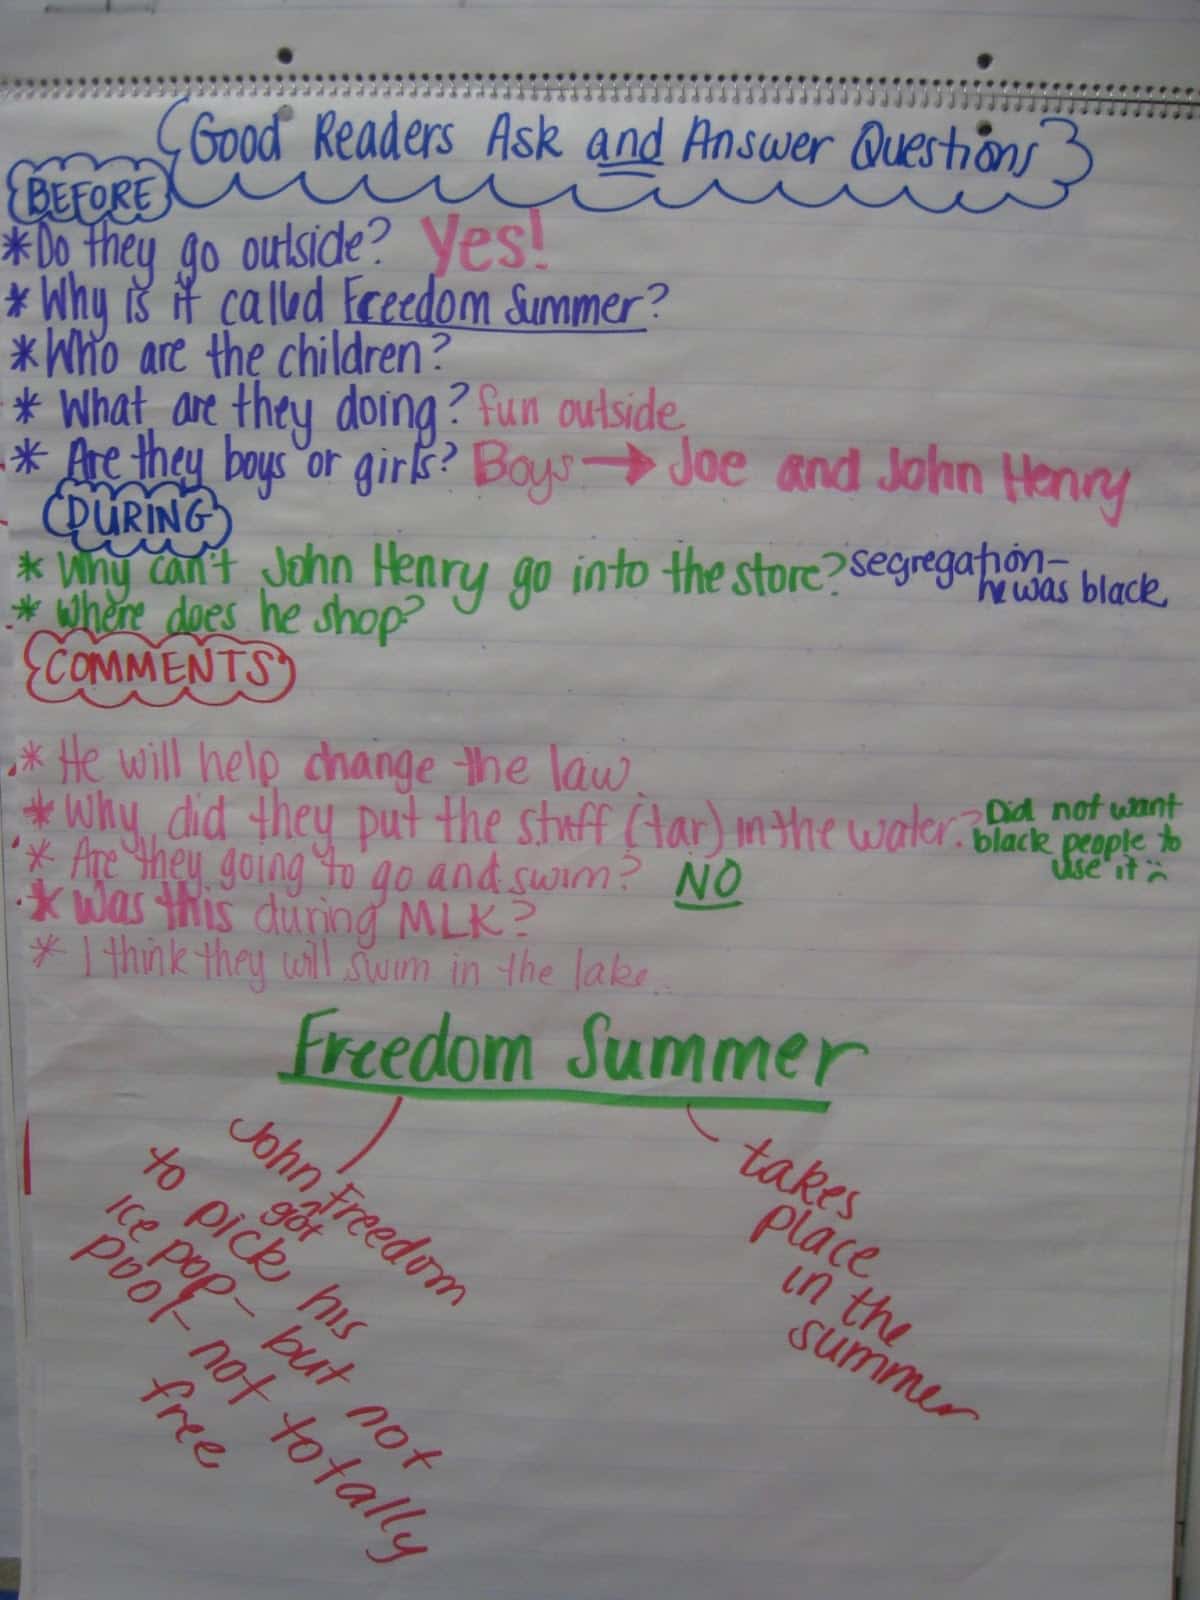 Good Readers Ask and Answer Questions
BEFORE
*Do they go outside? Yes!
*Why is it called Freedom Summer?
*Who are the children?
* What are they doing? fun outside.
* Are they boys or girls? Boys → Joe and John Henry
DURING
* Why can't John Henry go into the store? segregation-
he was black
* Where does he shop?
COMMENTS
* He will help change the law.
* Why did they put the stuff (tar) in the water.? Did not want
black people to
use it :(
* Are they going to go and swim? NO
* Was this during MLK?
* I think they will swim in the lake.
Freedom Summer
Freedom
John got
to pick his
ice pop- but not
pool- not totally
free
takes
place
in the
summer